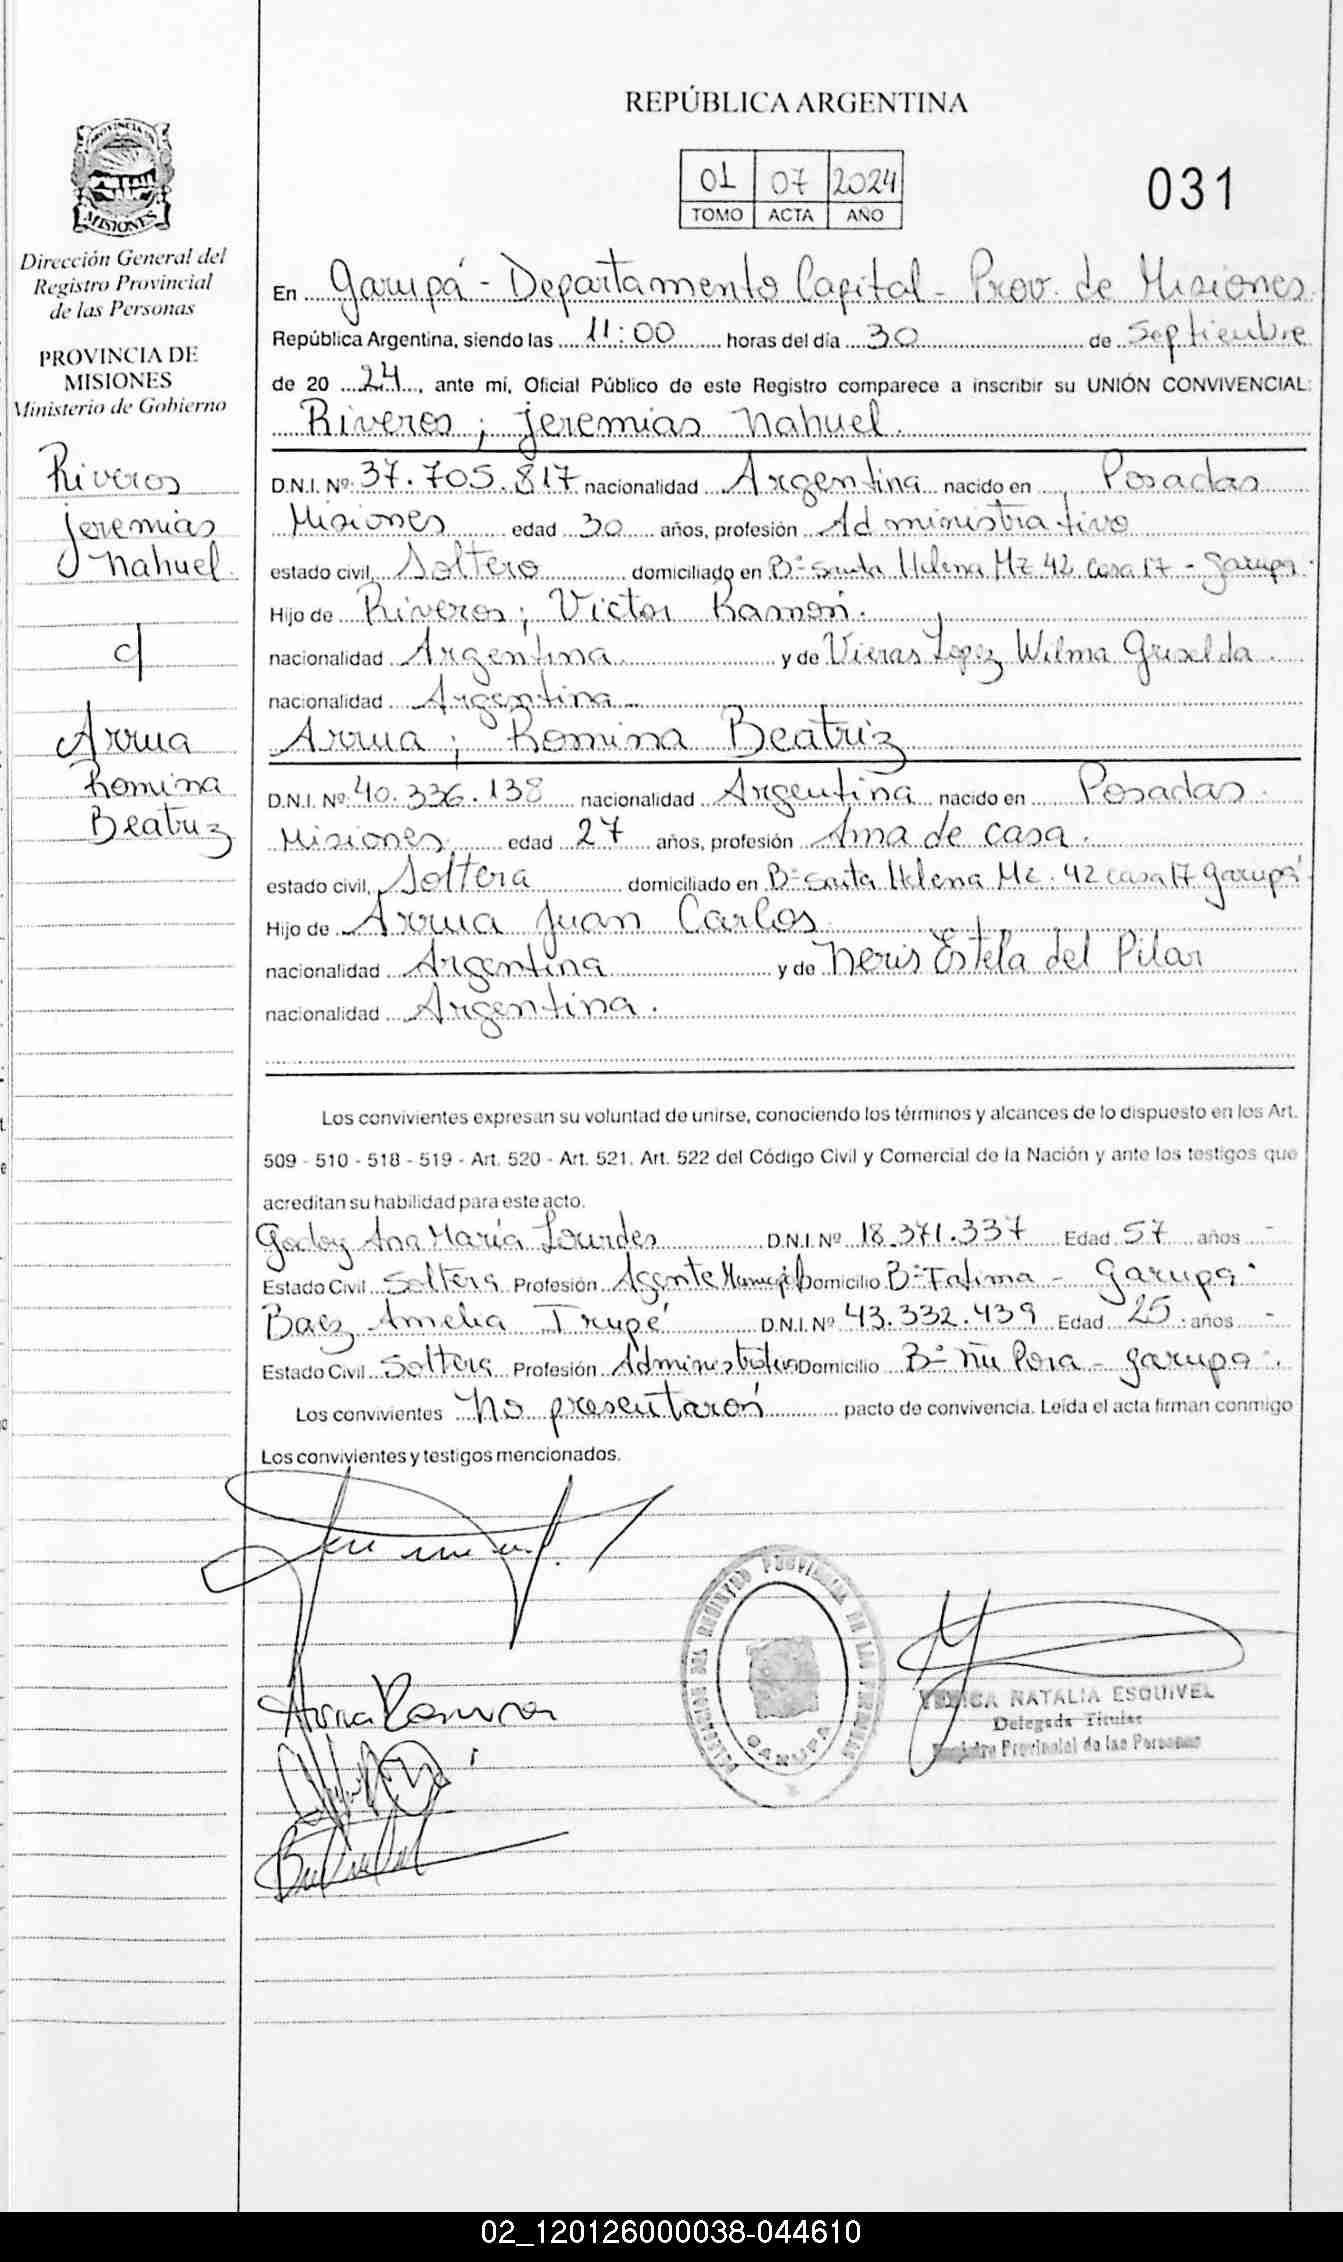 REPÚBLICA ARGENTINA
01 07 2024
TOMO ACTA AÑO
031
PROVINCIA DE
MISIONES
Dirección General del
Registro Provincial
de las Personas
PROVINCIA DE
MISIONES
Ministerio de Gobierno
Riveros
Jeremias
Nahuel.
c/
Arrua
Romina
Beatriz
En Garupá - Departamento Capital - Prov. de Misiones
República Argentina, siendo las 11:00 horas del día 30 de Septiembre
de 20 24, ante mí, Oficial Público de este Registro comparece a inscribir su UNIÓN CONVIVENCIAL:
Riveros; Jeremias Nahuel.
D.N.I. Nº 37.705.817 nacionalidad Argentina nacido en Posadas
Misiones edad 30 años, profesión Administrativo
estado civil, Soltero domiciliado en Bº Santa Helena Mz 42 casa 17 - Garupá.
Hijo de Riveros; Victor Ramón.
nacionalidad Argentina y de Vieras Lopez Wilma Griselda.
nacionalidad Argentina
Arrua; Romina Beatriz
D.N.I. Nº 40.336.138 nacionalidad Argentina nacido en Posadas.
Misiones edad 27 años, profesión Ama de casa.
estado civil, Soltera domiciliado en Bº Santa Helena Mz. 42 casa 17 Garupá
Hijo de Arrua Juan Carlos
nacionalidad Argentina y de Neris Estela del Pilar
nacionalidad Argentina.
Los convivientes expresan su voluntad de unirse, conociendo los términos y alcances de lo dispuesto en los Art.
509 - 510 - 518 - 519 - Art. 520 - Art. 521. Art. 522 del Código Civil y Comercial de la Nación y ante los testigos que
acreditan su habilidad para este acto.
Godoy Ana María Lourdes D.N.I. Nº 18.371.337 Edad 57 años -
Estado Civil Soltera Profesión Agente Municipal Domicilio Bº Fatima - Garupá.
Baez Amelia Trupé D.N.I. Nº 43.332.439 Edad 25 años -
Estado Civil Soltera Profesión Administrativa Domicilio Bº Ñu Pora - Garupá.
Los convivientes No presentarón pacto de convivencia. Leída el acta firman conmigo
Los convivientes y testigos mencionados.
Arrua Romina
DEL REGISTRO PROVINCIAL DE LAS PERSONAS
GARUPA
YESICA NATALIA ESQUIVEL
Delegada Titular
Registro Provincial de las Personas
02_120126000038-044610